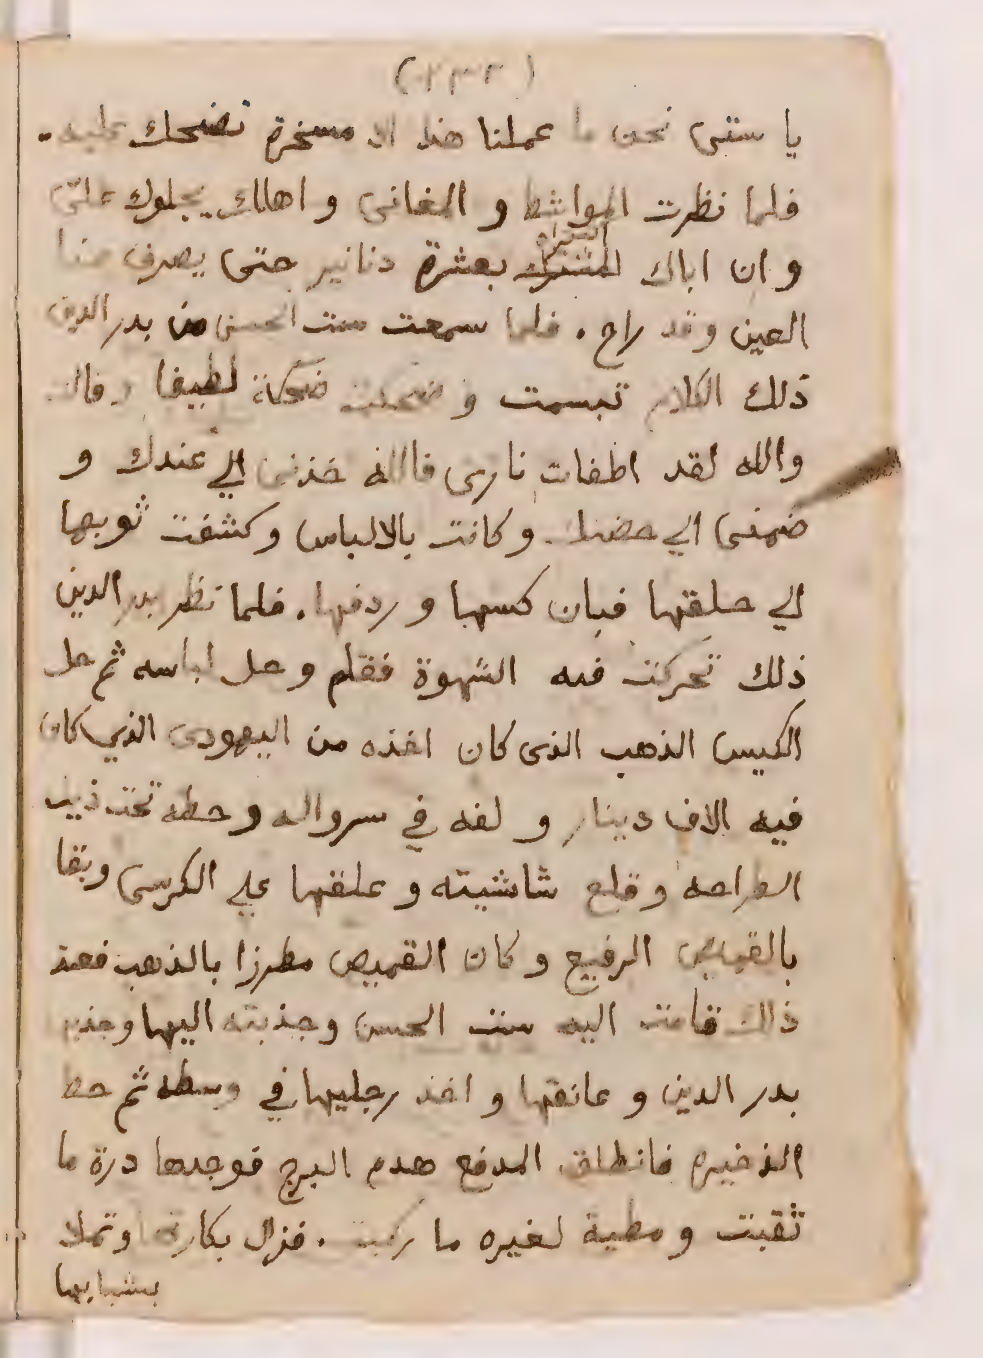 (٢٣٢)
يا ستى نحن ما عملنا هذا الا مسخرة نضحك عليه.
فلما نظرت المواشط و المغانى و اهلك يجلوك علىّ
و ان اباك بعشرة دنانير حتى يصرف عنا
العين وقد راح . فلما سمعت ست الحسن من بدر الدين
ذلك الكلام تبسمت و ضحكت ضحكة لطيفا وقالت
والله لقد اطفات نارى فاالله خذنى الي عندك و
ضمنى الي حضنك و كانت بالالباس وكشفت ثوبها
الي حلقها فبان كسها و ردفها . فلما نظر بدر الدين
ذلك تحركت فيه الشهوة فقام وحل لباسه ثم حل
الكيس الذهب الذى كان اخذه من اليهودى الذي كان
فيه الاف دينار و لفه في سرواله وحطه تحت ذيل
الطراحه و قلع شاشيته و علقها علي الكرسى وبقا
بالقميص الرفيع و كان القميص مطرزا بالذهب فعند
ذالك قامت اليه ست الحسن وجذبته اليها وجذبها
بدر الدين و عانقها و اخذ رجليها في وسطه ثم حط
الذخيره فانطلق المدفع هدم البرج فوجدها درة ما
ثقبت و مطية لغيره ما ركبت . فزال بكارتها وتملا
بشبابها